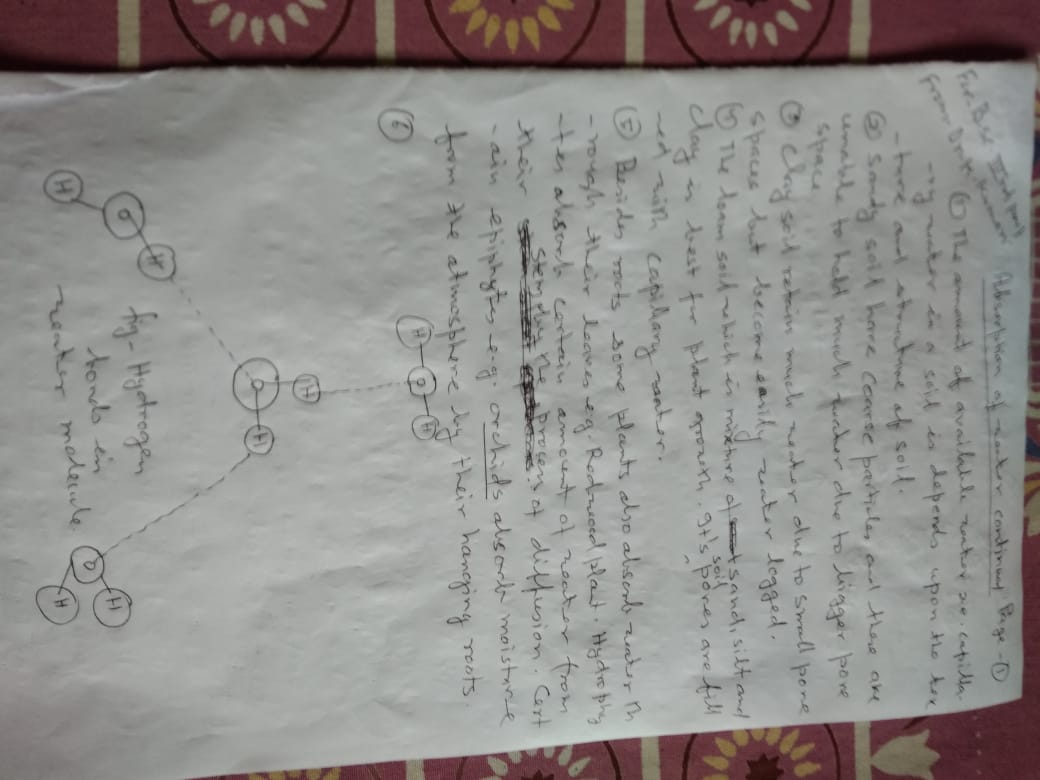 For B.Sc IInd part
From Dr. Absorption of water continued Page-①
① The amount of available water i.e. capilla-
-ry water in a soil is depends upon the tex
-ture and structure of soil.
② Sandy soil have coarse particles, and these are
unable to hold much water due to bigger pore
space.
③ Clay soil retain much water due to small pore
spaces but become easily water logged.
④ The loam soil which is mixture of sand, silt and
clay is best for plant growth. It's soil pores are fill
-ed with capillary water.
⑤ Besides roots some plants also absorb water th
-rough their leaves e.g. Redwood plant. Hydrophy
-tes absorb certain amount of water from
their stem by the process of diffusion. Cert
-ain epiphytes e.g. orchids absorb moisture
from the atmosphere by their hanging roots.
⑥
H O H
H
O H
H O H
O H
H
fig- Hydrogen
bonds in
water molecule